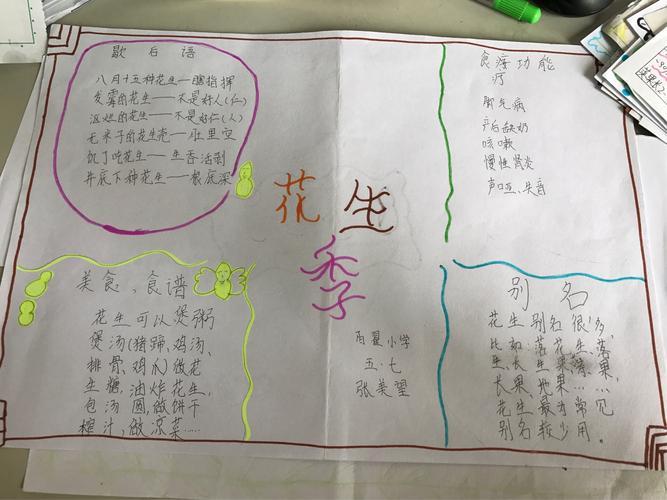 歇后语
八月十五种花生——瞎指挥
发霉的花生——不是好人(仁)
沤烂的花生——不是好仁(人)
无米子的花生壳——肚里空
饥了吃花生——生吞活剥
井底下种花生——根底深
食疗功能
疗
脚气病
产后缺奶
咳嗽
慢性肾炎
声哑、失音
花生
季
百翠小学
五·七
张美望
美食、食谱
花生可以煲粥
煲汤(猪蹄、鸡汤、
排骨、鸡爪)做花
生糖,油炸花生,
包汤圆,做饼干
榨汁,做凉菜……
别名
花生别名很多,
比如:落花生、落
生、长生果、
长果、地果……
花生最为常见
别名较少用。